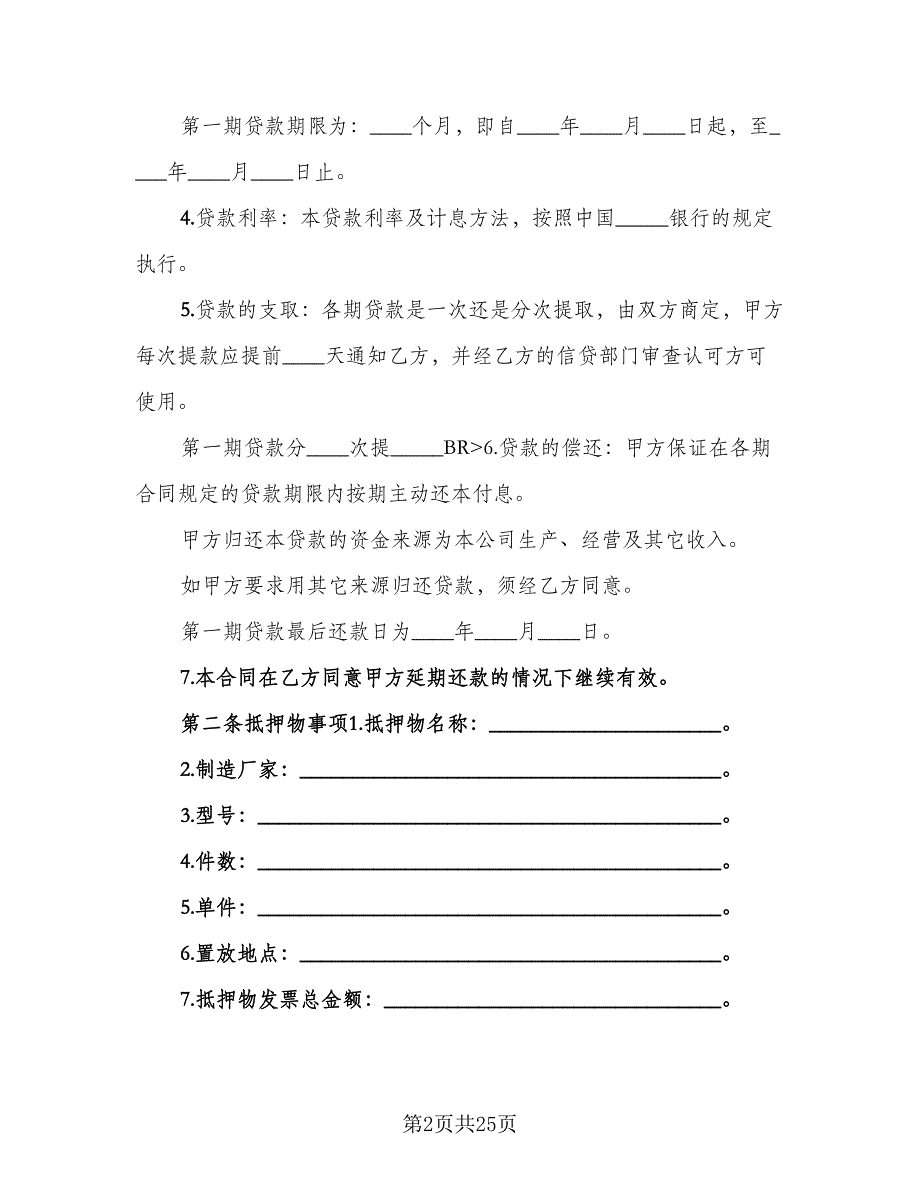 第一期贷款期限为：____个月，即自____年____月____日起，至_
___年____月____日止。
4.贷款利率：本贷款利率及计息方法，按照中国_____银行的规定
执行。
5.贷款的支取：各期贷款是一次还是分次提取，由双方商定，甲方
每次提款应提前____天通知乙方，并经乙方的信贷部门审查认可方可
使用。
第一期贷款分____次提_____BR>6.贷款的偿还：甲方保证在各期
合同规定的贷款期限内按期主动还本付息。
甲方归还本贷款的资金来源为本公司生产、经营及其它收入。
如甲方要求用其它来源归还贷款，须经乙方同意。
第一期贷款最后还款日为____年____月____日。
7.本合同在乙方同意甲方延期还款的情况下继续有效。
第二条抵押物事项1.抵押物名称：______________________。
2.制造厂家：________________________________________。
3.型号：____________________________________________。
4.件数：____________________________________________。
5.单件：____________________________________________。
6.置放地点：________________________________________。
7.抵押物发票总金额：________________________________。
第2页共25页